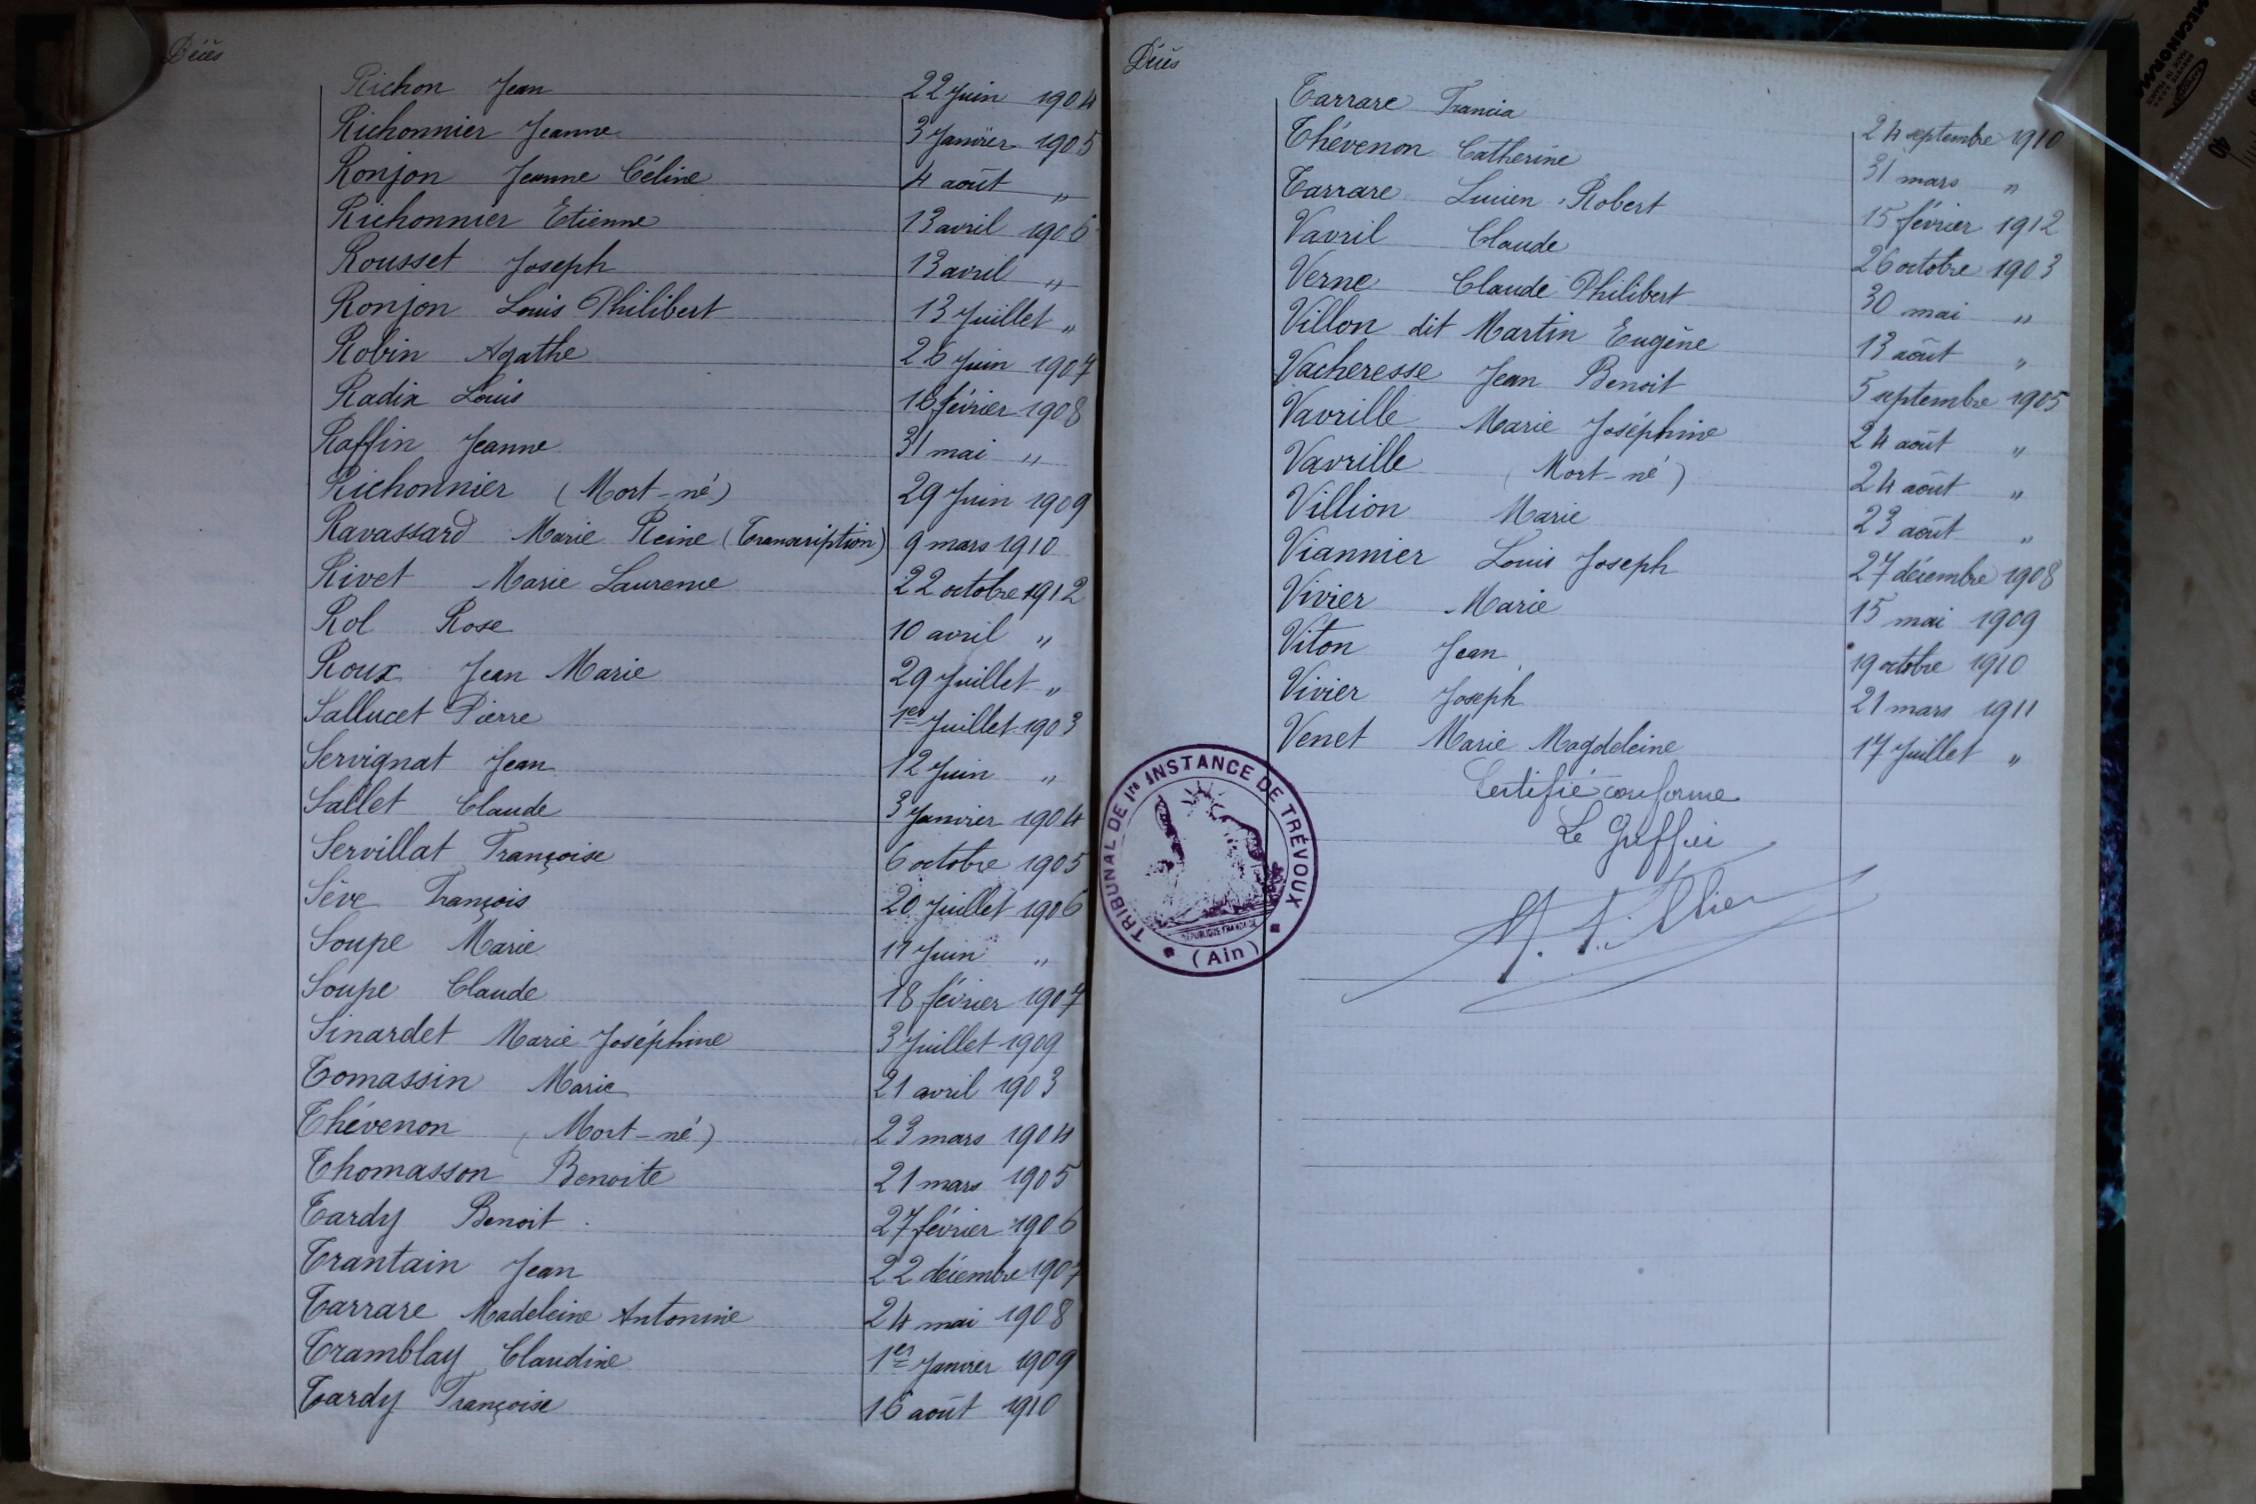 Décès
Richon Jean 22 Juin 1904
Richonnier Jeanne 3 Janvier 1905
Ronjon Jeanne Céline 4 août "
Richonnier Etienne 13 avril 1906
Rousset Joseph 13 avril "
Ronjon Louis Philibert 13 Juillet "
Robin Agathe 26 Juin 1907
Radix Louis 16 février 1908
Raffin Jeanne 31 mai "
Richonnier (Mort-né) 29 Juin 1909
Ravassard Marie Reine (Transcription) 9 mars 1910
Rivet Marie Laurence 22 octobre 1912
Rol Rose 10 avril "
Roux Jean Marie 29 Juillet "
Sallucet Pierre 1er Juillet 1903
Servignat Jean 12 Juin "
Sallet Claude 3 Janvier 1904
Servillat Françoise 6 octobre 1905
Sève François 20 Juillet 1906
Soupe Marie 17 Juin "
Soupe Claude 18 février 1907
Sinardet Marie Joséphine 3 Juillet 1909
Tomassin Marie 21 avril 1903
Thévenon (Mort-né) 23 mars 1904
Thomasson Benoite 21 mars 1905
Tardy Benoit 27 février 1906
Trantain Jean 22 décembre 1907
Tarrare Madeleine Antonine 24 mai 1908
Tramblay Claudine 1er Janvier 1909
Tardy Françoise 16 août 1910
Décès
Tarrare Francia 24 septembre 1910
Thévenon Catherine 31 mars "
Tarrare Lucien Robert 15 février 1912
Vavril Claude 26 octobre 1903
Verne Claude Philibert 30 mai "
Villon dit Martin Eugène 13 août "
Vacheresse Jean Benoit 5 septembre 1905
Vavrille Marie Joséphine 24 août "
Vavrille (Mort-né) 24 août "
Villion Marie 23 août "
Viannier Louis Joseph 27 décembre 1908
Vivier Marie 15 mai 1909
Viton Jean 19 octobre 1910
Vivier Joseph 21 mars 1911
Venet Marie Magdeleine 17 Juillet "
Certifié conforme
Le Greffier
TRIBUNAL DE 1re INSTANCE DE TRÉVOUX
RÉPUBLIQUE FRANÇAISE
(Ain)